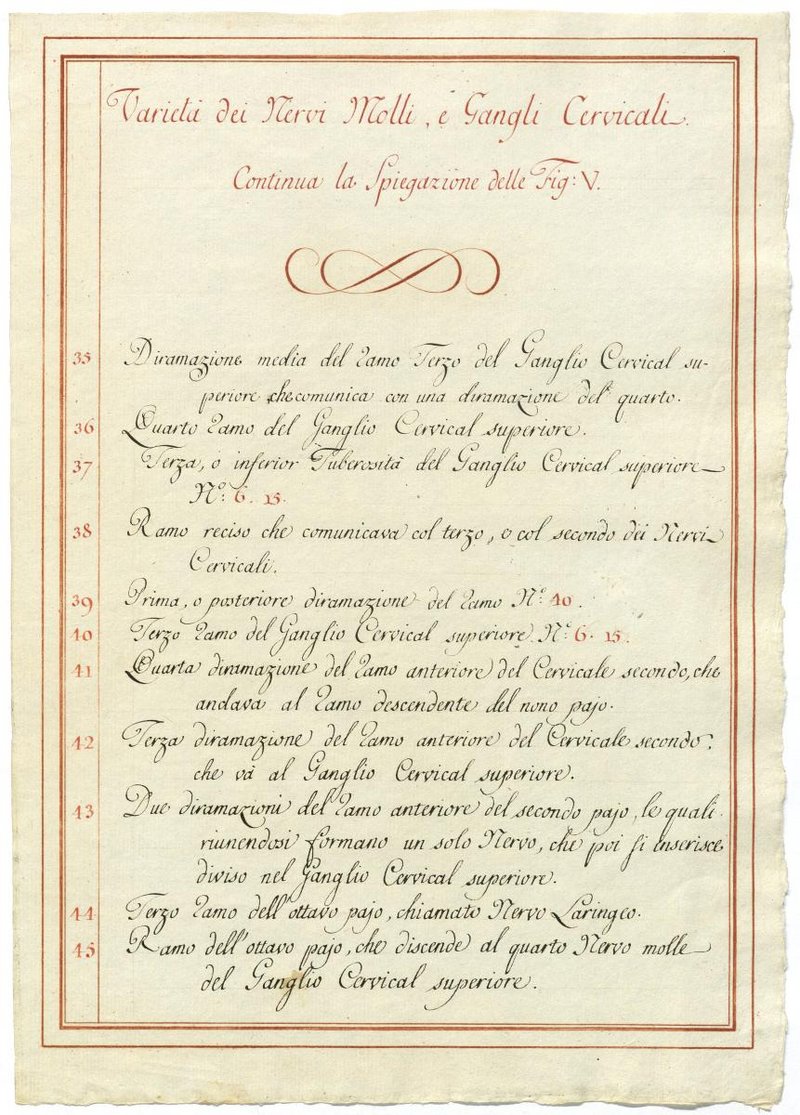 Varietà dei Nervi Molli, e Gangli Cervicali.
Continua la Spiegazione delle Fig: V.
35 Diramazione media del Ramo Terzo del Ganglio Cervical su-
periore che comunica con una diramazione del quarto.
36 Quarto Ramo del Ganglio Cervical superiore.
37 Terza, o inferior Tuberosità del Ganglio Cervical superiore
N.º 6. 15.
38 Ramo reciso che comunicava col terzo, e col secondo dei Nervi
Cervicali.
39 Prima, o posteriore diramazione del Ramo N.º 40.
40 Terzo Ramo del Ganglio Cervical superiore N.º 6. 15.
41 Quarta diramazione del Ramo anteriore del Cervicale secondo, che
andava al Ramo descendente del nono pajo.
42 Terza diramazione del Ramo anteriore del Cervicale secondo,
che và al Ganglio Cervical superiore.
43 Due diramazioni del Ramo anteriore del secondo pajo, le quali
riunendosi formano un solo Nervo, che poi si inserisce
diviso nel Ganglio Cervical superiore.
44 Terzo Ramo dell'ottavo pajo, chiamato Nervo Laringeo.
45 Ramo dell'ottavo pajo, che discende al quarto Nervo molle
del Ganglio Cervical superiore.